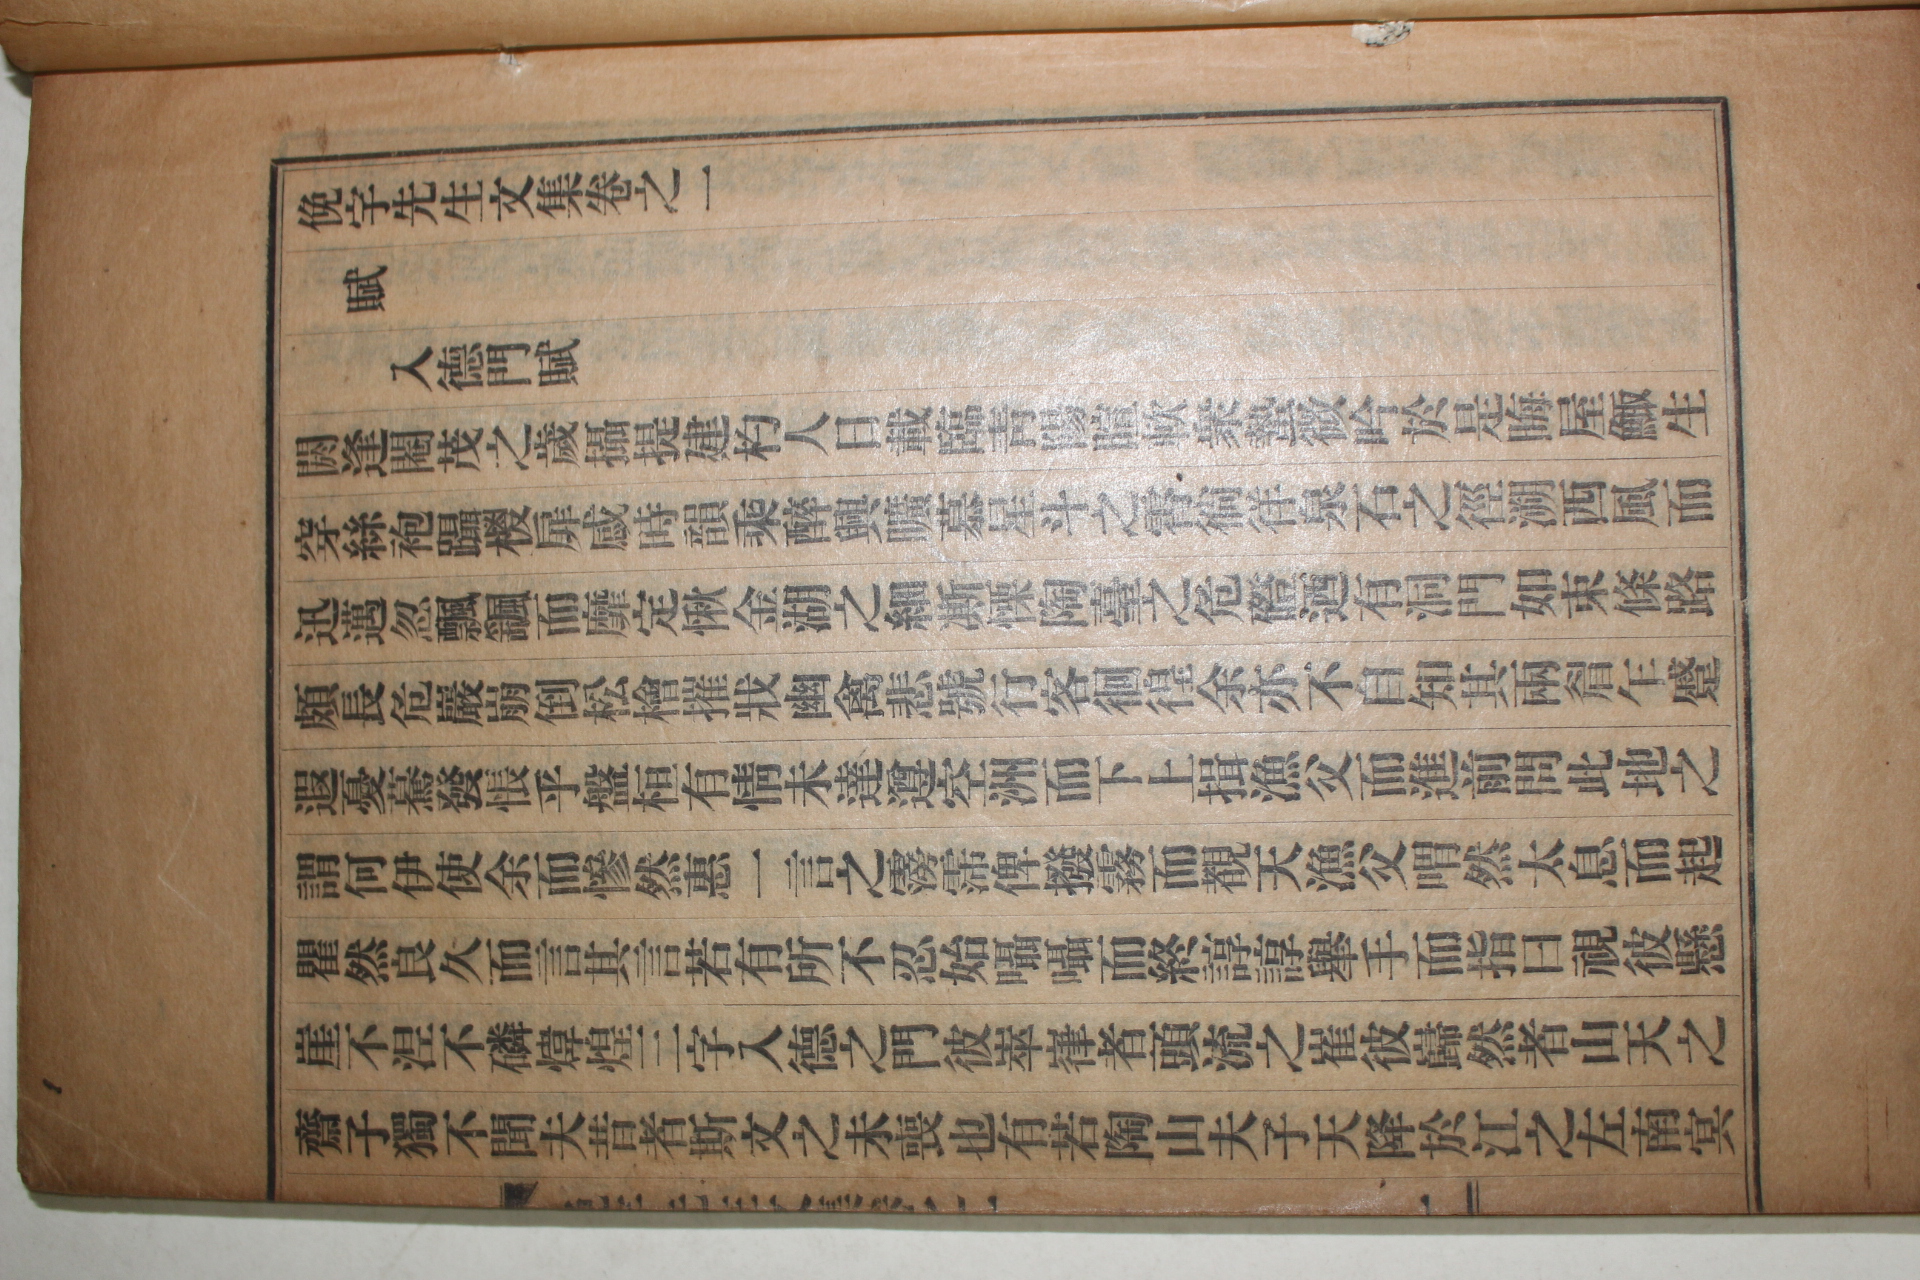 俛宇先生文集卷之一
賦
入德門賦
閼逢閹茂之歲攝提建杓人日載臨靑陽暄軟衆蟄微吟於是晦屋鯫生
穿絲袍躡椶屝感時韻乘醉興曠慕星斗之霄徜徉泉石之徑溯西風而
迅邁忽飄颻而靡定愀金湖之細澌慄陶臺之危磴迺有洞門如束條路
頗長危巖崩倒松檜摧戕幽禽悲號行客徊徨余亦不自知其兩眉乍蹙
遐憂驀發悵乎盤桓有情未達遵空洲而下上揖漁父而進前問此地之
謂何伊使余而慘然惠一言之霶霈俾撥霧而覩天漁父喟然太息而起
瞿然良久而言其言若有所不忍始囁囁而終諄諄擧手而指曰視彼懸
崖不涅不磷煒煌三字入德之門彼崒嵂者頭流之崔彼巋然者山天之
齋子獨不聞夫昔者斯文之未喪也有若陶山夫子天降於江之左南冥